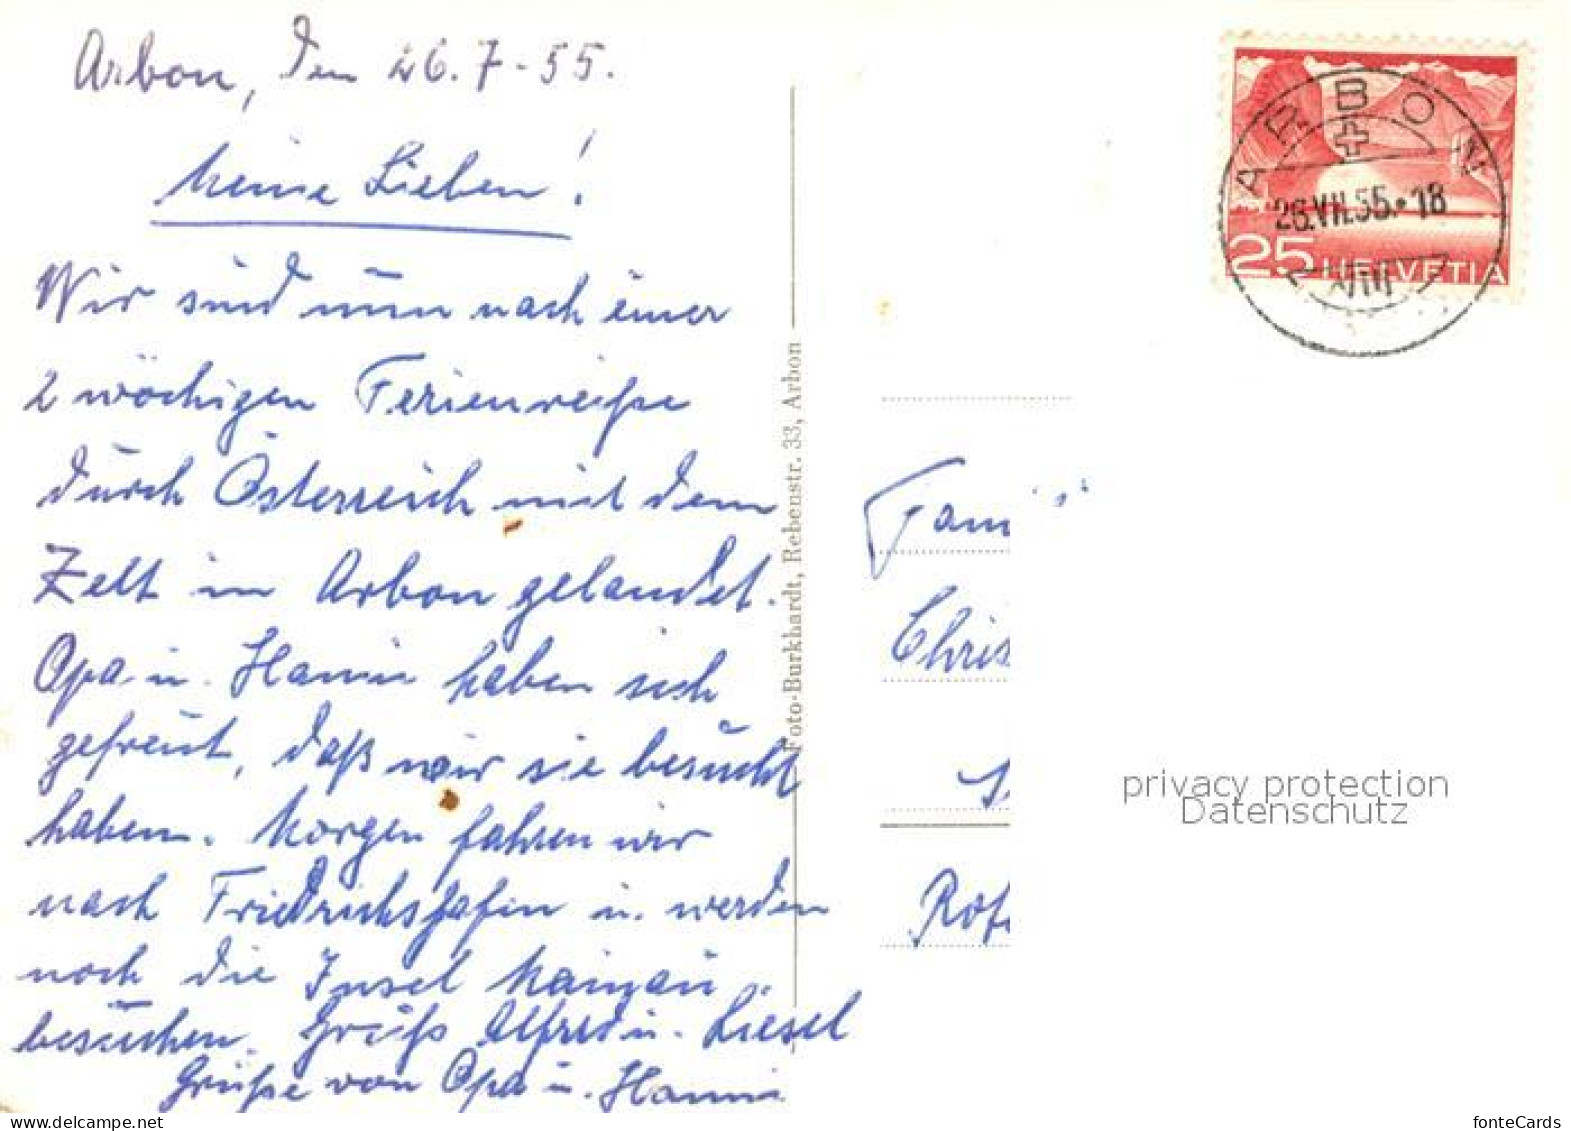 Arbon, den 26.7-55.
Meine Lieben!
Wir sind nun nach einer
2 wöchigen Ferienreise
durch Österreich mit dem
Zelt in Arbon gelandet.
Opa u. Hanni haben sich
gefreut, daß wir sie besucht
haben. Morgen fahren wir
nach Friedrichshafen u. werden
noch die Insel Mainau
besuchen. Gruß Alfred u. Liesel
Grüße von Opa u. Hanni
Foto-Burkhardt, Rebenstr. 33, Arbon
ARBON
26.VII.55.•18
25 HELVETIA
Fami
Chris
privacy protection
Datenschutz
fonteCards